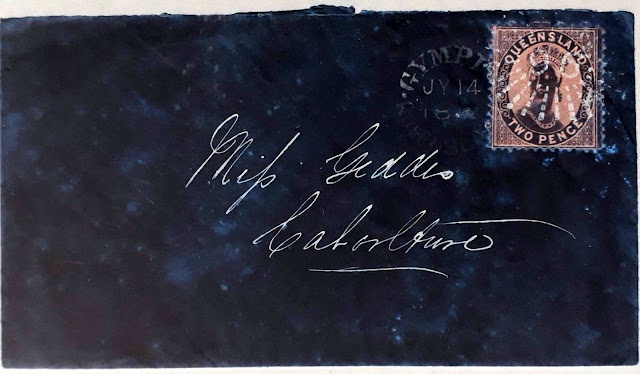 QUEENSLAND
TWO PENCE
GYMPI
JY 14
Miſs Geddes
Caboolture